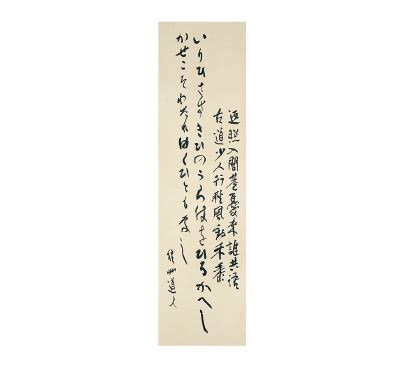 返照入閭巷憂来誰共語
古道少人行秋風動禾黍
いりひさすきひのうらはをひるかへし
かせこそわたれゆくひともなし
秋艸道人